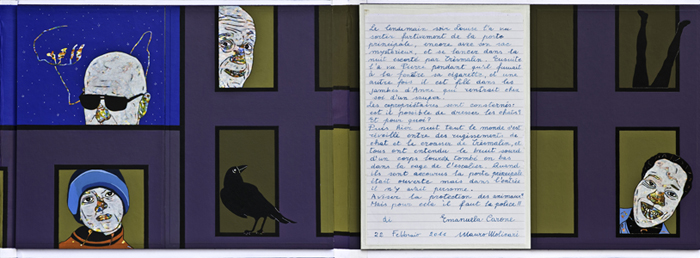 Le lendemain soir Louise l'a vu
sortir furtivement de la porte
principale, encore avec son sac
mystérieux, et se lancer dans la
nuit escorté par Trévmalin. Ensuite
l'a vu Pierre pendant qu'il fumait
à la fenêtre sa cigarette, et une
autre fois il est filé dans les
jambes d'Anne qui rentrait chez
soi d'un souper.
Les copropriétaires sont consternés:
est il possible de dresser les chats?
Et pour quoi?
Puis hier nuit tout le monde s'est
réveillé entre des rugissements de
chat et le croasser de Trévmalin, et
tous ont entendu le bruit sourd
d'un corps lourde tombé en bas
dans la cage de l'escalier. Quand
ils sont accourus la porte principale
était ouverte mais dans l'entrée
il n'y avait personne.
Aviser la protection des animaux?
Mais pour cela il faut la police?
di Emanuela Carone
22 Febbraio 2011 Mauro Molinari